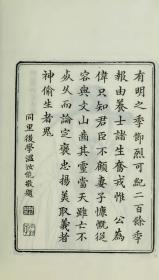 有明之季節烈可紀二百餘季
報由養士諸生奮戎惟　公為
偉只知君臣不顧妻子慷慨從
容與文山齒其靈當天雖亡不
歲久而論定褒忠揚美取義者
神偷生者鬼
同里後學溫汝能敬題